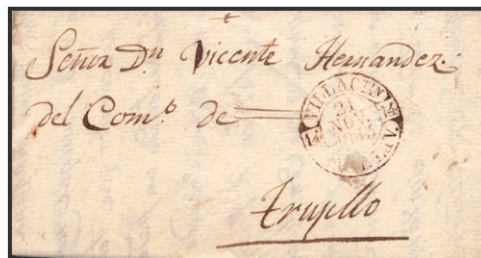 Señor Dn Vicente Hernandez.
del Como de
21
NOV.
Trujillo